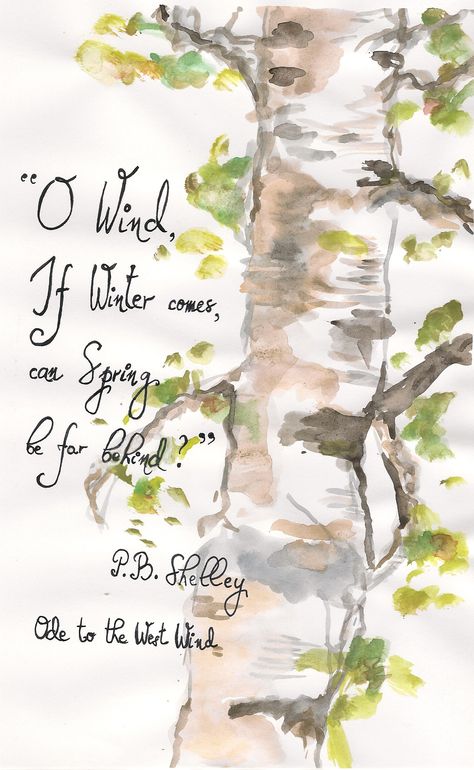 “O Wind,
If Winter comes,
can Spring
be far behind?”
P.B. Shelley
Ode to the West Wind